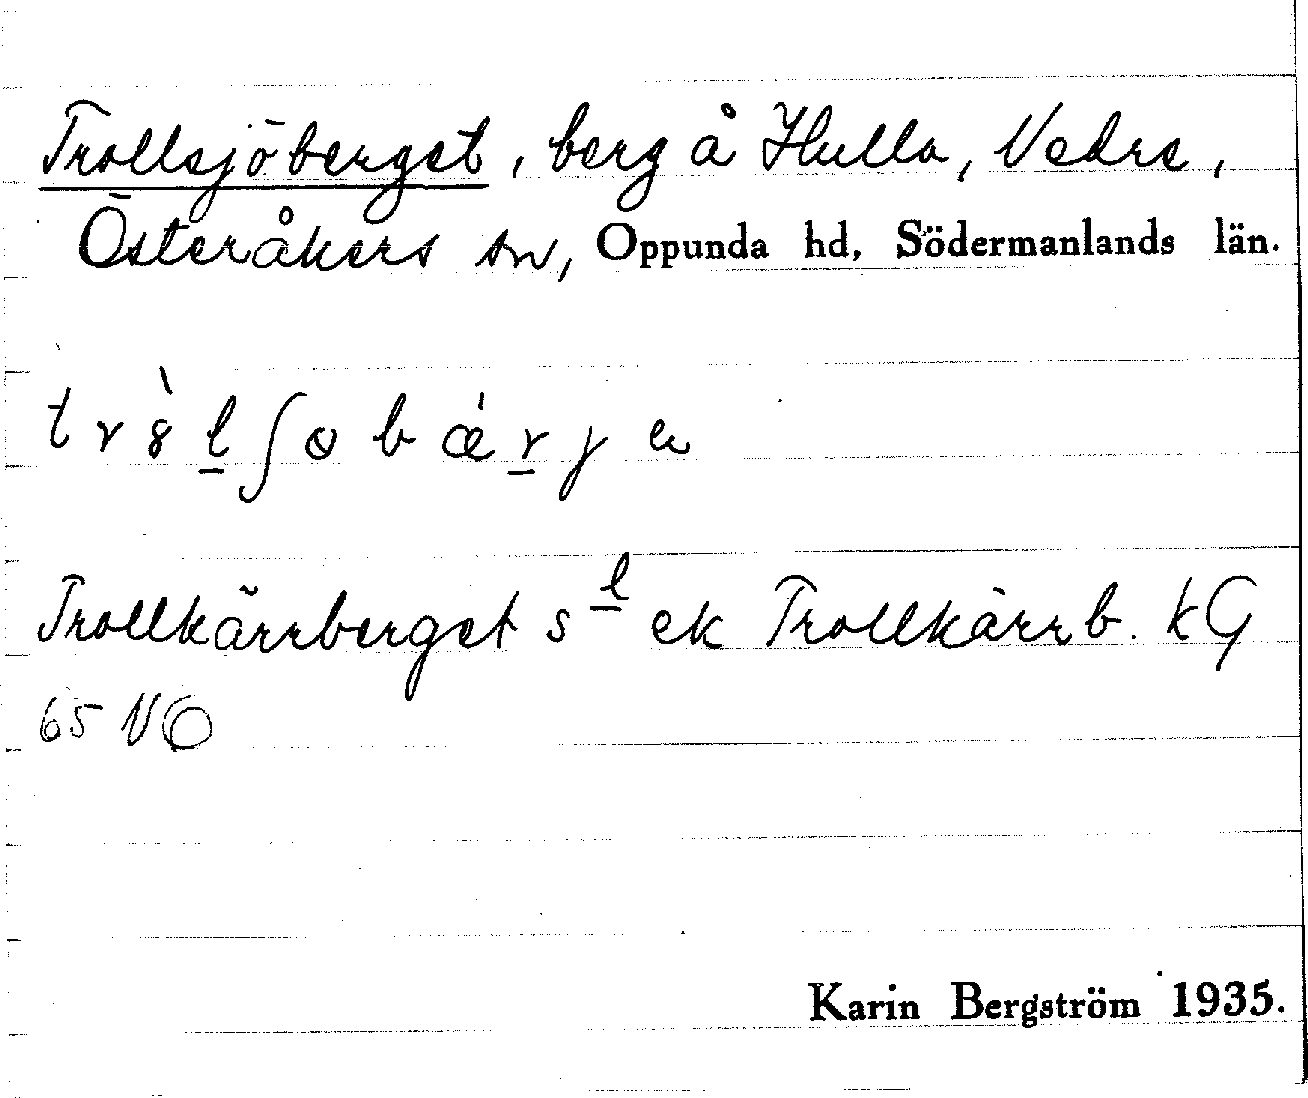 Trollsjöberget, berg å Hulla, Nedre,
Österåkers sn, Oppunda hd, Södermanlands län.
Trollkärrberget s l ek Trollkärrb. kG
65 NO
Karin Bergström 1935.